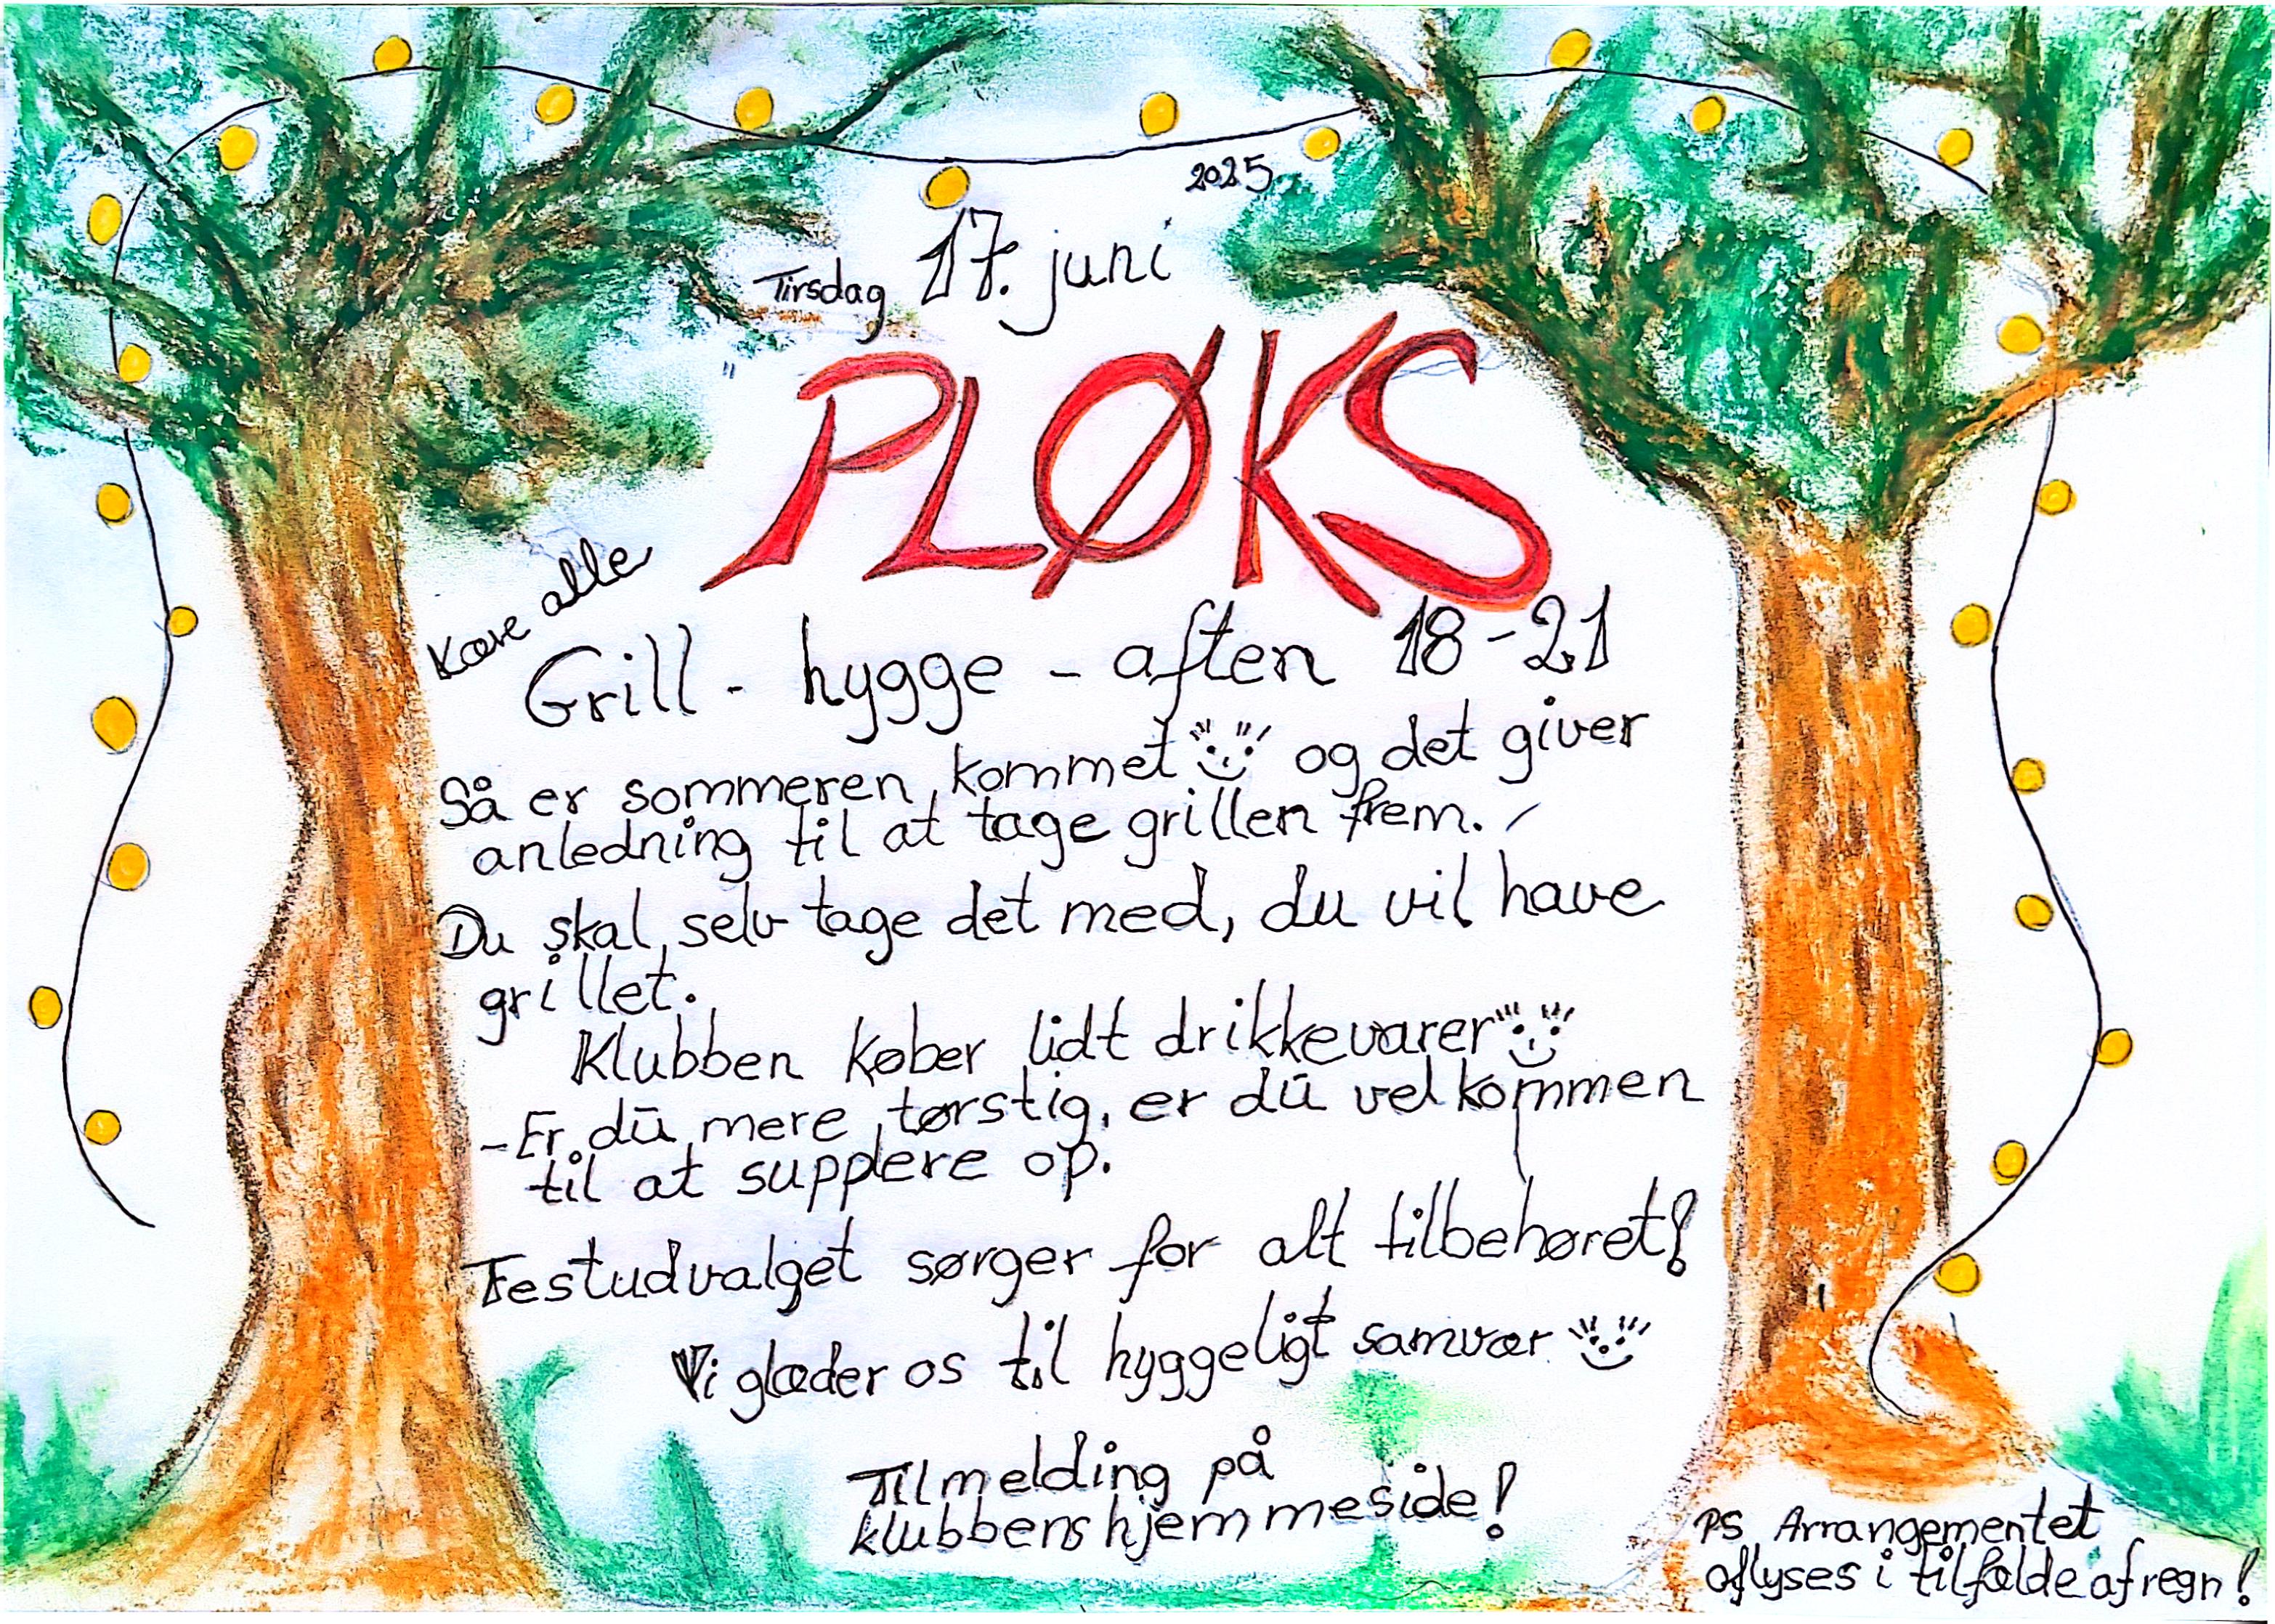 2025
Tirsdag 17. juni
"PLØKS
Kære alle
Grill - hygge - aften 18-21
Så er sommeren kommet og det giver
anledning til at tage grillen frem.
Du skal selv tage det med, du vil have
grillet.
Klubben køber lidt drikkevarer
- Er dū mere tørstig, er dū velkommen
til at supplere op.
Festudvalget sørger for alt tilbehøret!
Vi glæder os til hyggeligt samvær
Tilmelding på
klubbens hjemmeside!
PS Arrangementet
aflyses i tilfælde af regn!